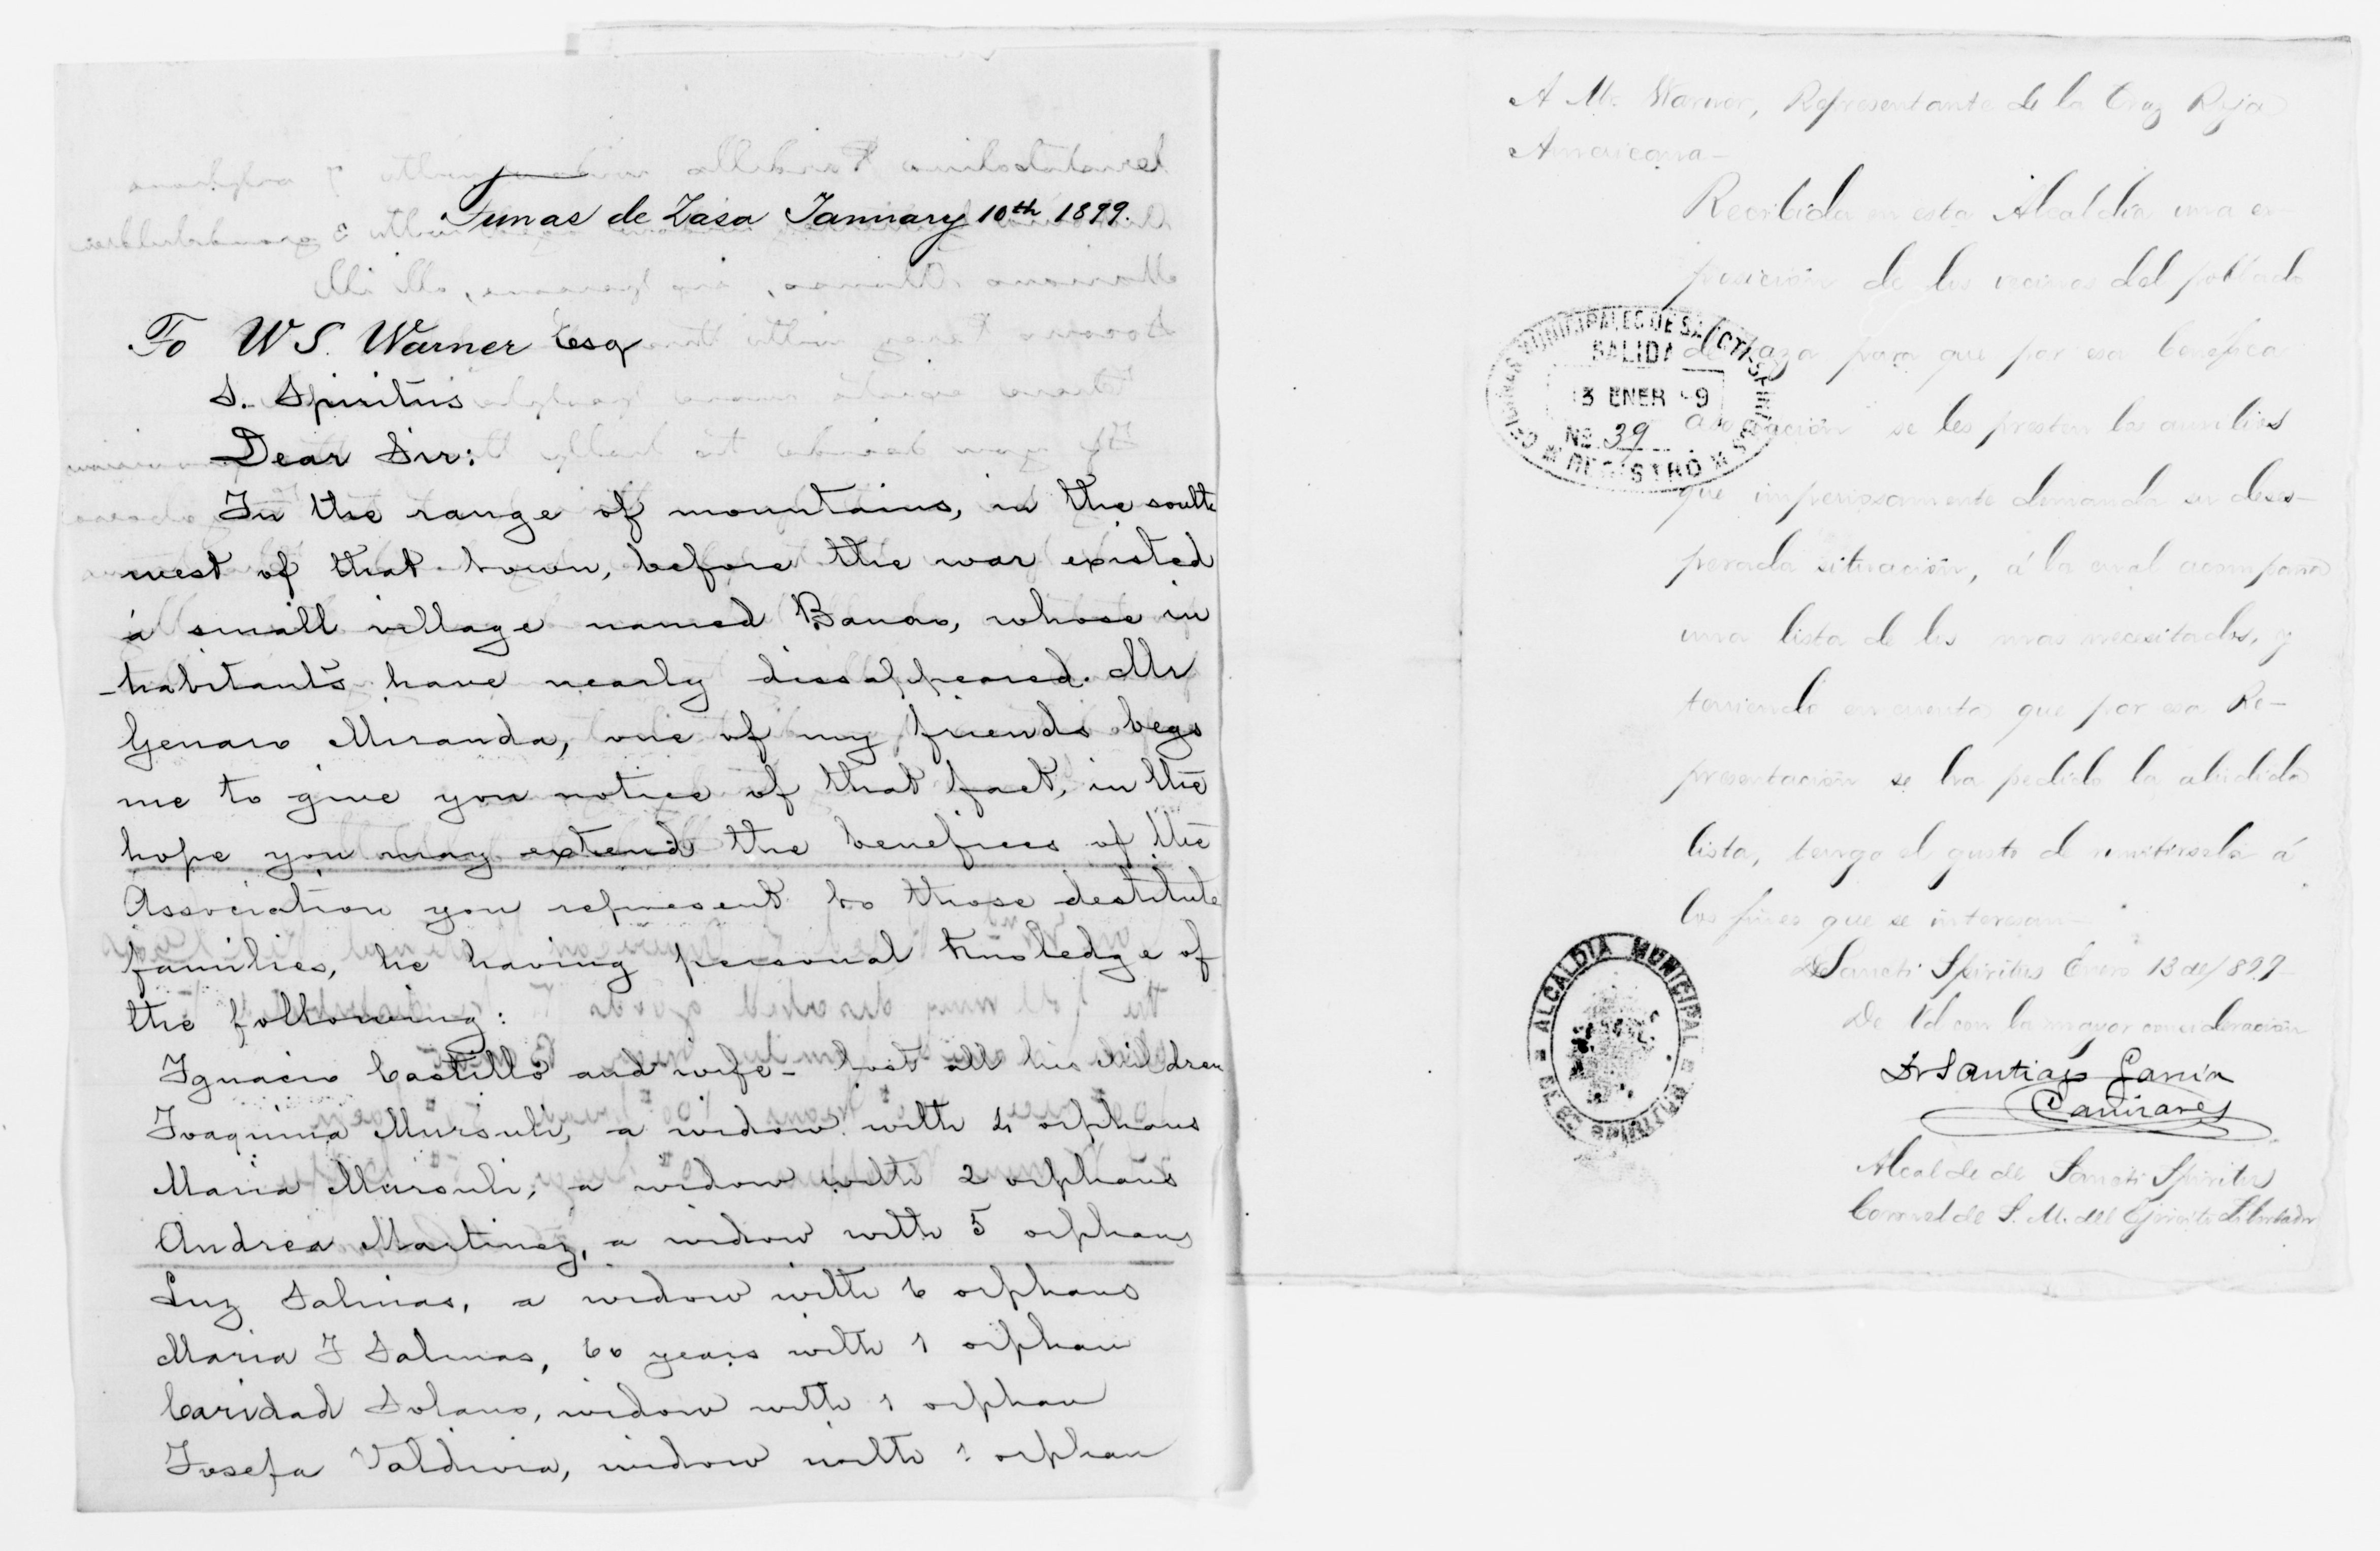 Tunas de Zasa January 10th 1899.
To W S. Warner Esq
S. Spiritus
Dear Sir:
In the range of mountains, in the south
west of that town, before the war existed
á small village named Banao, whose in
-habitants have nearly dissappeared. Mr
Genaro Miranda, one of my friends begs
me to give you notice of that fact, in the
hope you may extend the benefices of the
Association you represent to those destitute
families, he having personal knoledge of
the following:
Ignacio Castillo and wife - lost all his children
Joaquina Mursuli, a widow with 4 orphans
Maria Mursuli, a widow with 2 orphans
Andrea Martinez, a widow with 5 orphans
Luz Salinas, a widow with 6 orphans
Maria J Salinas, 60 years with 1 orphan
Caridad Solano, widow with 1 orphan
Josefa Valdivia, widow with 1 orphan
A Mr. Warner, Representante de la Cruz Roja
Americana-
Recibida en esta Alcaldia una ex-
posición de los vecinos del poblado
de Zaza para que por esa benefica
asociación se les presten los auxilios
que imperiosamente demanda su deses-
perada situación, á la cual acompaña
una lista de los mas necesitados, y
teniendo en cuenta que por esa Re-
presentación se ha pedido la aludida
lista, tengo el gusto de remitirsela á
los fines que se interesan-
Sancti Spiritus Enero 13 de 1899
De Vd con la mayor consideración
Dr Santiago Garcia
Cañizares
Alcalde de Sancti Spiritus
Coronel de S. M. del Ejército Libertador
OFICINAS MUNICIPALES DE SANCTI-SPIRITUS
SALIDA
13 ENER 99
No. 39
REGISTRO
ALCALDIA MUNICIPAL
DE SC. SPIRITUS